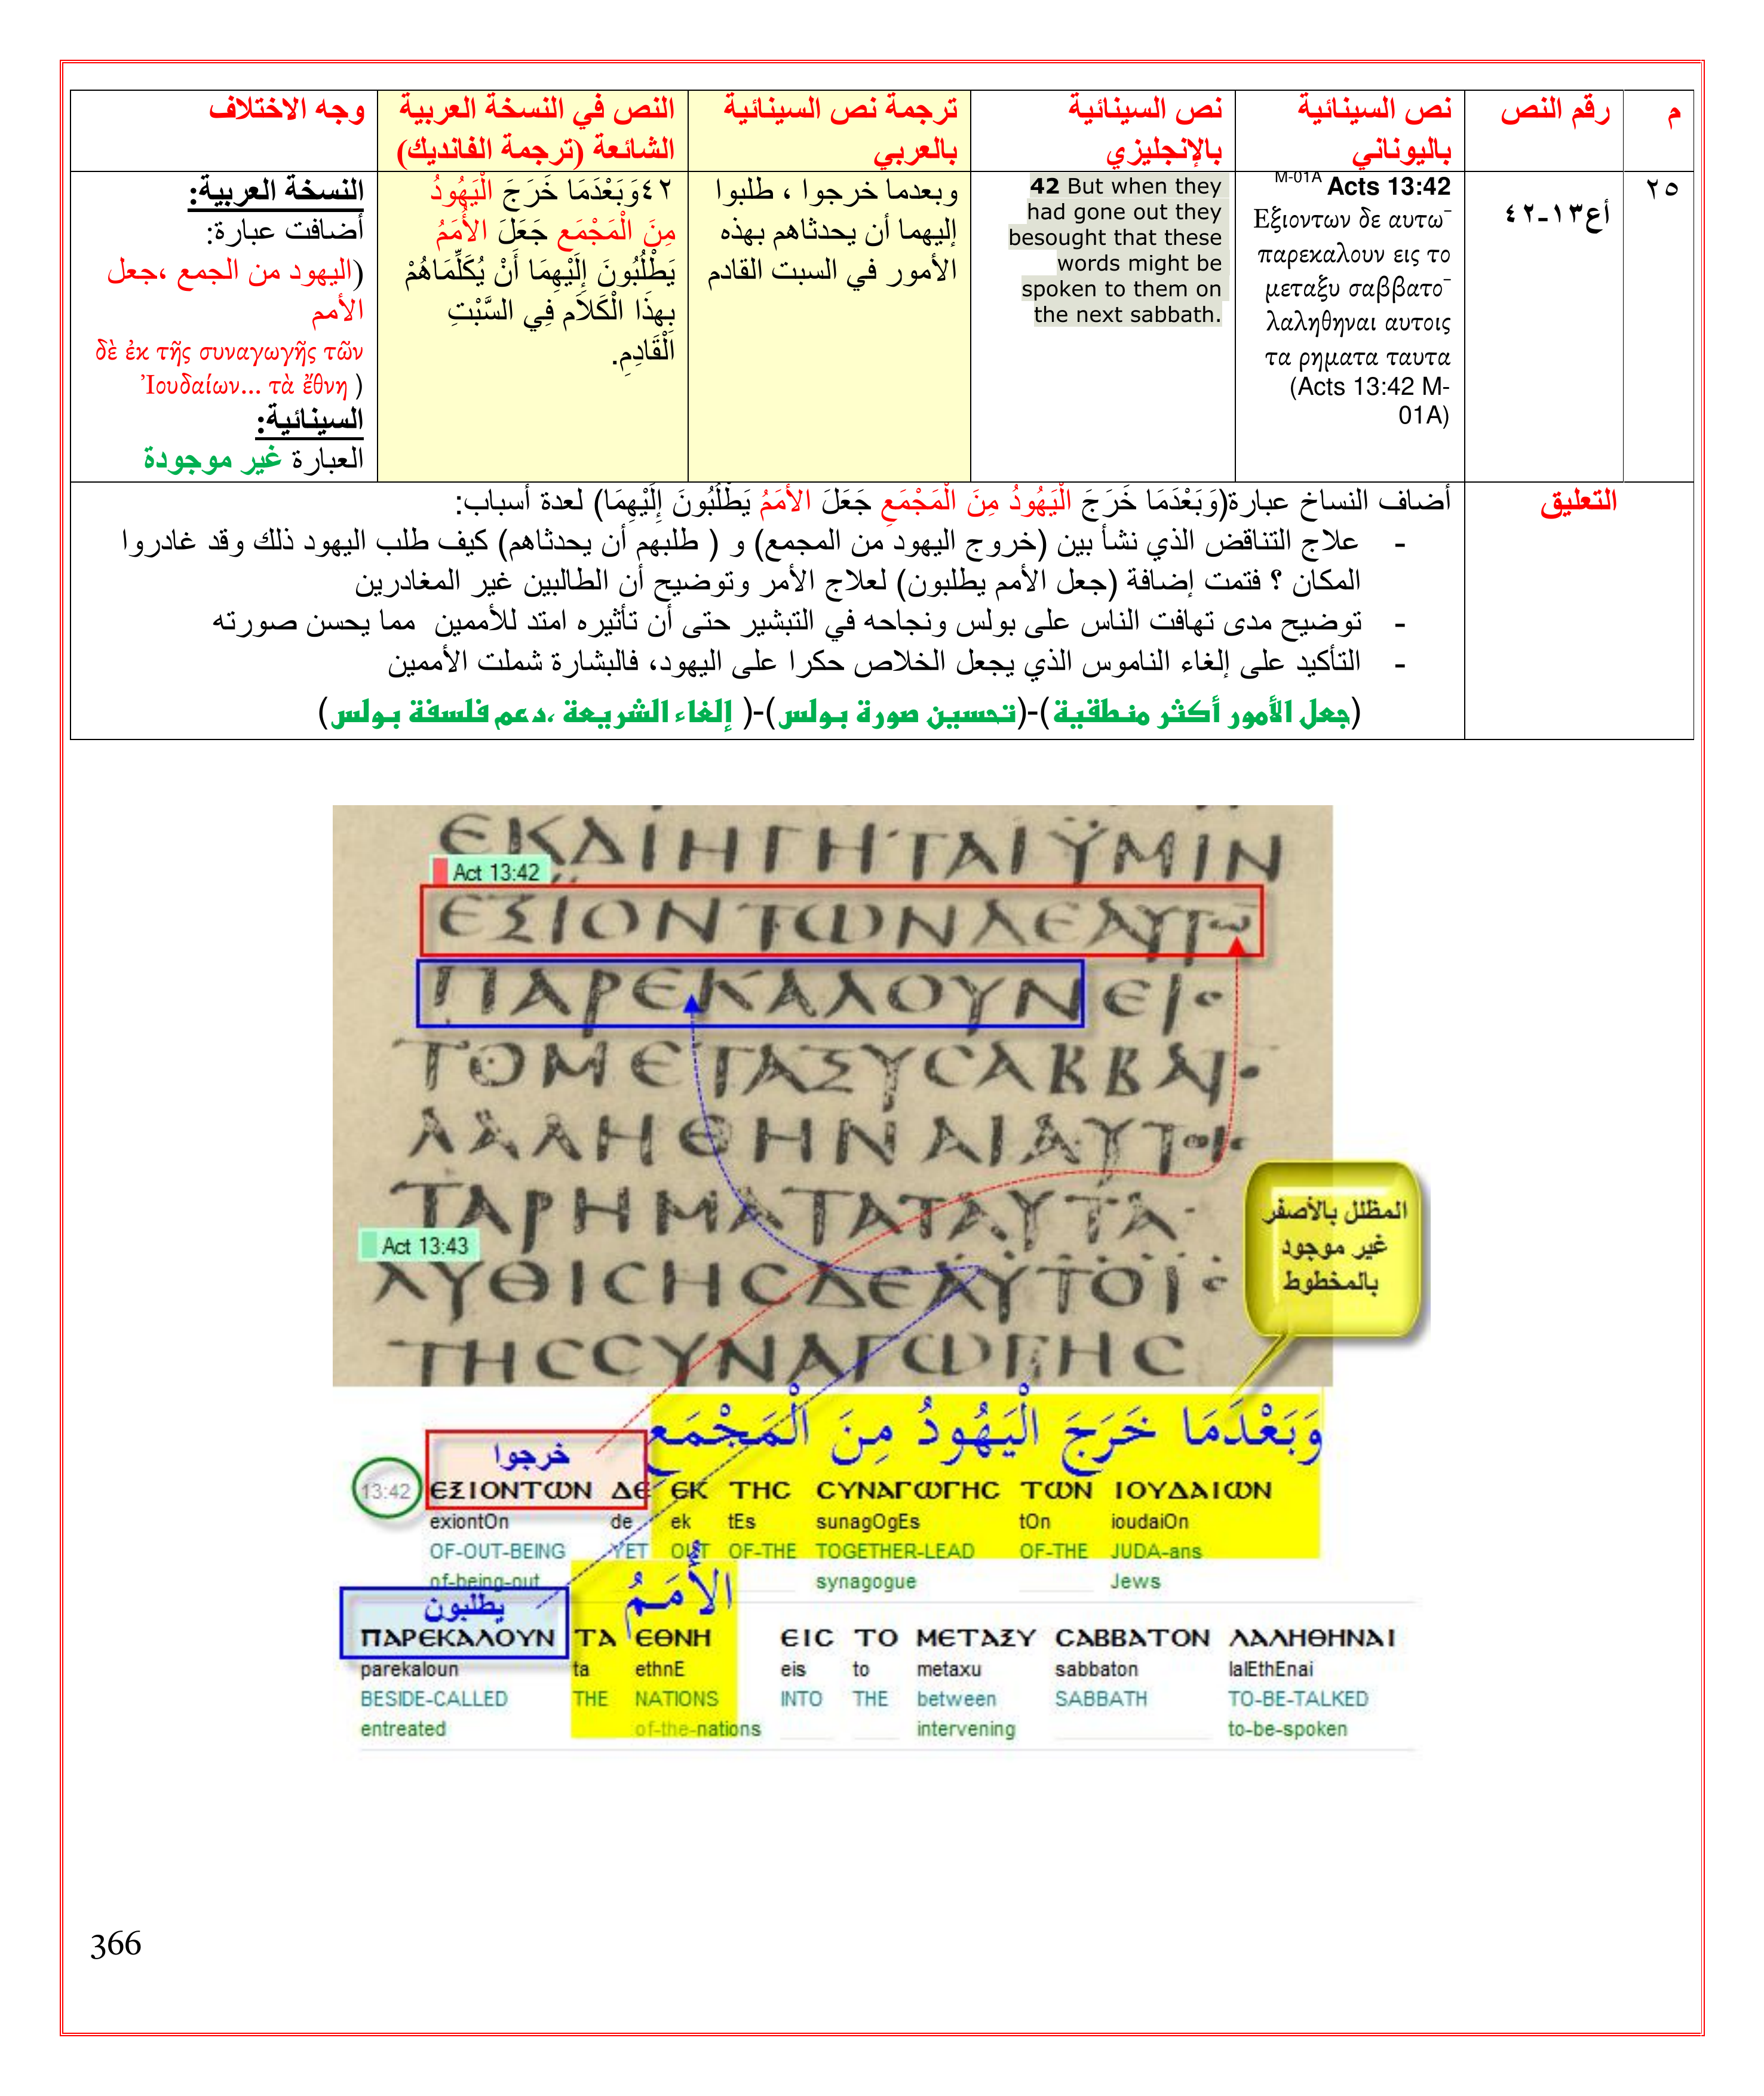 م
رقم النص
نص السينائية
باليوناني
نص السينائية
بالإنجليزي
ترجمة نص السينائية
بالعربي
النص في النسخة العربية
الشائعة (ترجمة الفانديك)
وجه الاختلاف
٢٥
أع١٣-٤٢
M-01A Acts 13:42
Εξιοντων δε αυτω¯
παρεκαλουν εις το
μεταξυ σαββατο¯
λαληθηναι αυτοις
τα ρηματα ταυτα
(Acts 13:42 M-
01A)
42 But when they
had gone out they
besought that these
words might be
spoken to them on
the next sabbath.
وبعدما خرجوا ، طلبوا
إليهما أن يحدثاهم بهذه
الأمور في السبت القادم
٤٢وَبَعْدَمَا خَرَجَ الْيَهُودُ
مِنَ الْمَجْمَعِ جَعَلَ الأُمَمُ
يَطْلُبُونَ إِلَيْهِمَا أَنْ يُكَلِّمَاهُمْ
بِهذَا الْكَلاَم فِي السَّبْتِ
الْقَادِمِ.
النسخة العربية:
أضافت عبارة:
(اليهود من الجمع ،جعل
الأمم
δὲ ἐκ τῆς συναγωγῆς τῶν
Ἰουδαίων... τὰ ἔθνη )
السينائية:
العبارة غير موجودة
التعليق
أضاف النساخ عبارة(وَبَعْدَمَا خَرَجَ الْيَهُودُ مِنَ الْمَجْمَعِ جَعَلَ الأمَمُ يَطْلُبُونَ إِلَيْهِمَا) لعدة أسباب:
- علاج التناقض الذي نشأ بين (خروج اليهود من المجمع) و ( طلبهم أن يحدثاهم) كيف طلب اليهود ذلك وقد غادروا
المكان ؟ فتمت إضافة (جعل الأمم يطلبون) لعلاج الأمر وتوضيح أن الطالبين غير المغادرين
- توضيح مدى تهافت الناس على بولس ونجاحه في التبشير حتى أن تأثيره امتد للأممين مما يحسن صورته
- التأكيد على إلغاء الناموس الذي يجعل الخلاص حكرا على اليهود، فالبشارة شملت الأممين
(جعل الأمور أكثر منطقية)-(تحسين صورة بولس)-( إلغاء الشريعة ،دعم فلسفة بولس)
ΕΚΔΙΗΓΗΤΑΙ ΫΜΙΝ
Act 13:42
ΕΞΙΟΝΤΩΝΔΕΑΥΤΩ̄
ΠΑΡΕΚΑΛΟΥΝΕΙϹ
ΤΟΜΕΤΑΞΥϹΑΒΒΑΤ
ΛΑΛΗΘΗΝΑΙΑΥΤΟΙϹ
ΤΑΡΗΜΑΤΑΤΑΥΤΑ
Act 13:43
ΛΥΘΙϹΗϹΔΕΑΥΤΟΙϹ
ΤΗϹϹΥΝΑΓΩΓΗϹ
المظلل بالأصفر
غير موجود
بالمخطوط
وَبَعْدَمَا خَرَجَ الْيَهُودُ مِنَ الْمَجْمَعِ
خرجوا
13:42 ΕΞΙΟΝΤΩΝ ΔΕ ΕΚ ΤΗϹ ϹΥΝΑΓΩΓΗϹ ΤΩΝ ΙΟΥΔΑΙΩΝ
exiontOn de ek tEs sunagOgEs tOn ioudaiOn
OF-OUT-BEING YET OUT OF-THE TOGETHER-LEAD OF-THE JUDA-ans
of-being-out synagogue Jews
الأُمَمُ
يطلبون
ΠΑΡΕΚΑΛΟΥΝ ΤΑ ΕΘΝΗ ΕΙϹ ΤΟ ΜΕΤΑΞΥ ϹΑΒΒΑΤΟΝ ΛΑΛΗΘΗΝΑΙ
parekaloun ta ethnE eis to metaxu sabbaton lalEthEnai
BESIDE-CALLED THE NATIONS INTO THE between SABBATH TO-BE-TALKED
entreated of-the-nations intervening to-be-spoken
366